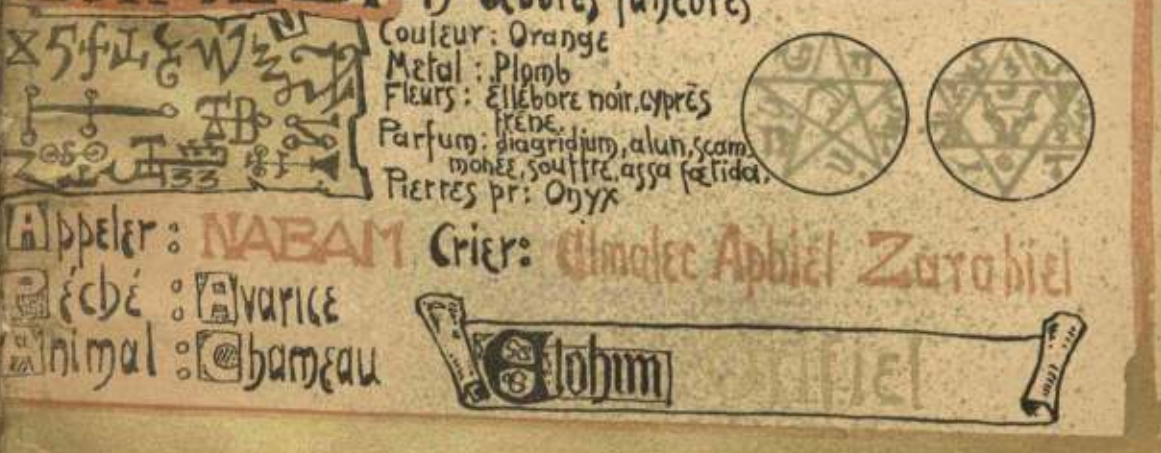 Œuvres funèbres
Couleur: Orange
Metal: Plomb
Fleurs: Ellébore noir, cyprès
frêne.
Parfum: diagridium, alun, scam-
monée, souffre, assa fœtida.
Pierres pr: Onyx
Appeler: NABAM Crier: Elmalec Aphiel Zarahiel
Péché: Avarice
Animal: Chameau
Elohim